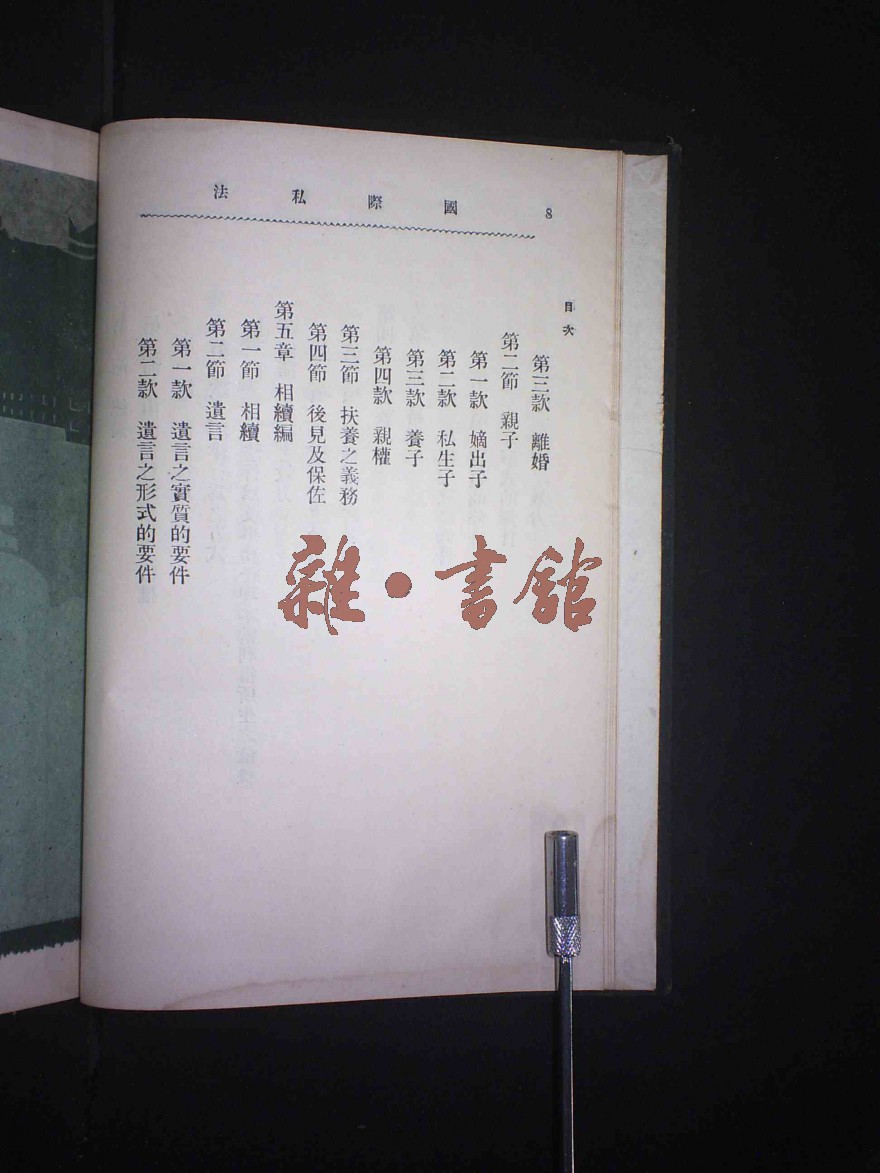 8 國際私法
目次
第三款 離婚
第二節 親子
第一款 嫡出子
第二款 私生子
第三款 養子
第四款 親權
第三節 扶養之義務
第四節 後見及保佐
第五章 相續編
第一節 相續
第二節 遺言
第一款 遺言之實質的要件
第二款 遺言之形式的要件
雜·書館